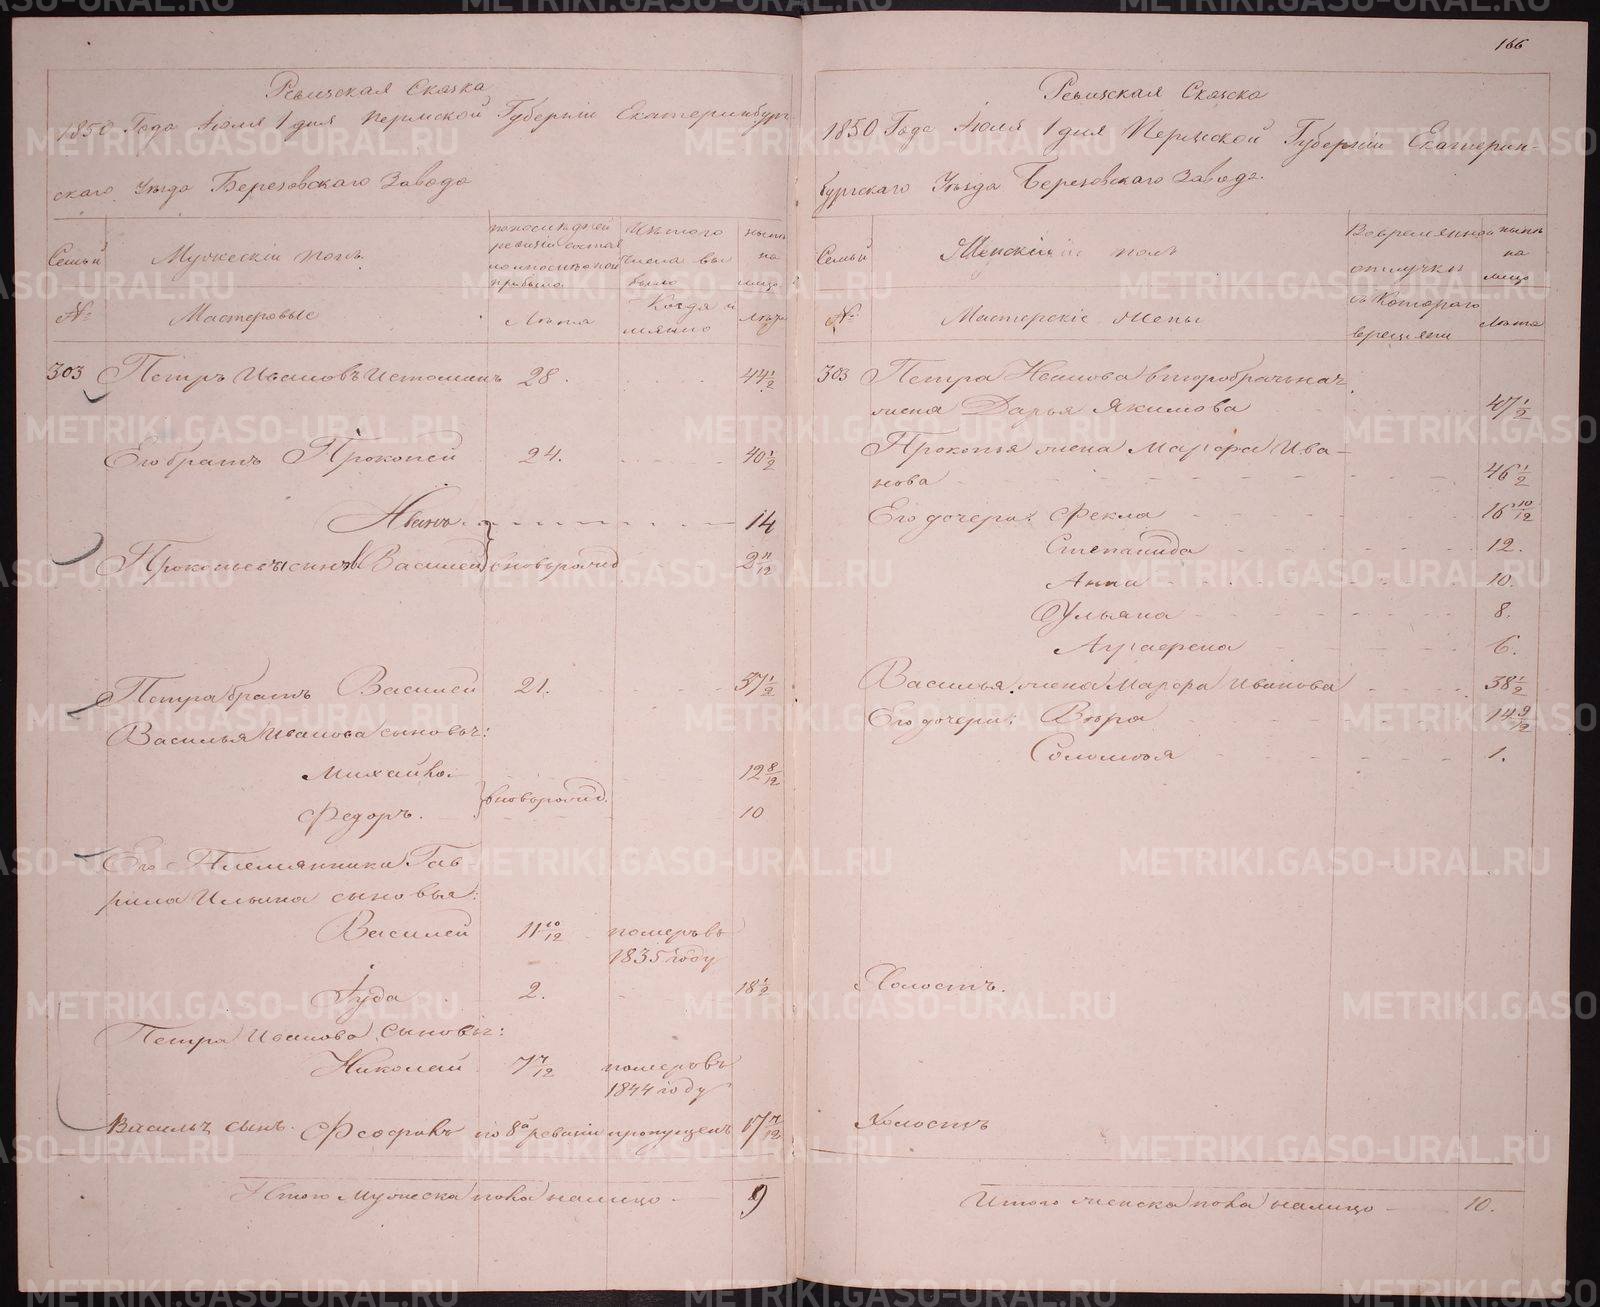 Ревизская Сказка
1850 Года Июля 1 дня Пермской Губернии Екатеринбург-
скаго Уезда Березовскаго Завода
Семьи
Мужескiй полъ.
По последней
ревизiи состоял
и после оной
прибыло
Изъ того
числа вы
было
ныне
на
лицо
№
Мастеровые
Лета
Когда и
менно
Лета
303 Петръ Ивановъ Истоминъ 28. 44 1/2
Его братъ Прокопей 24. 40 1/2
Иванъ 14
Прокопьевы сын Василей вновьрожд 2 11/12
Петра братъ Василей 21. 37 1/2
Василья Иванова сыновья:
Михайло 12 8/12
вновьрожд.
Федоръ. 10
Его Племянника Гав
рила Ильина сыновья:
Василей 11 10/12 померъ въ
1835 году
Iуда 2. 18 1/2
Петра Иванова сыновья:
Николай 7 7/12 померъ въ
1844 году
Василья сынъ Феофанъ по 8й ревизiи пропущенъ 17 7/12
Итого мужеска пола налицо 9
166
Ревизская Сказка
1850 Года Июля 1 дня Пермской Губернiи Екатерин-
бургскаго Уезда Березовскаго Завода.
Семьи
Женскiй полъ
Во временной
отлучке
ныне
на
лицо
№
Мастерскiе Жены
съ Котораго
времяни
Лета
303 Петра Иванова второбрачная
жена Дарья Якимова 47 1/2
Прокопья жена Марфа Ива-
нова 46 1/2
Его дочери: Фекла 16 10/12
Степанида 12.
Анна 10.
Ульяна 8.
Аграфена 6.
Василья жена Марфа Иванова 38 1/2
Его дочери: Вера 14 9/12
Соломея 1.
Холостъ.
Холостъ
Итого женска пола налицо 10.
METRIKI.GASO-URAL.RU